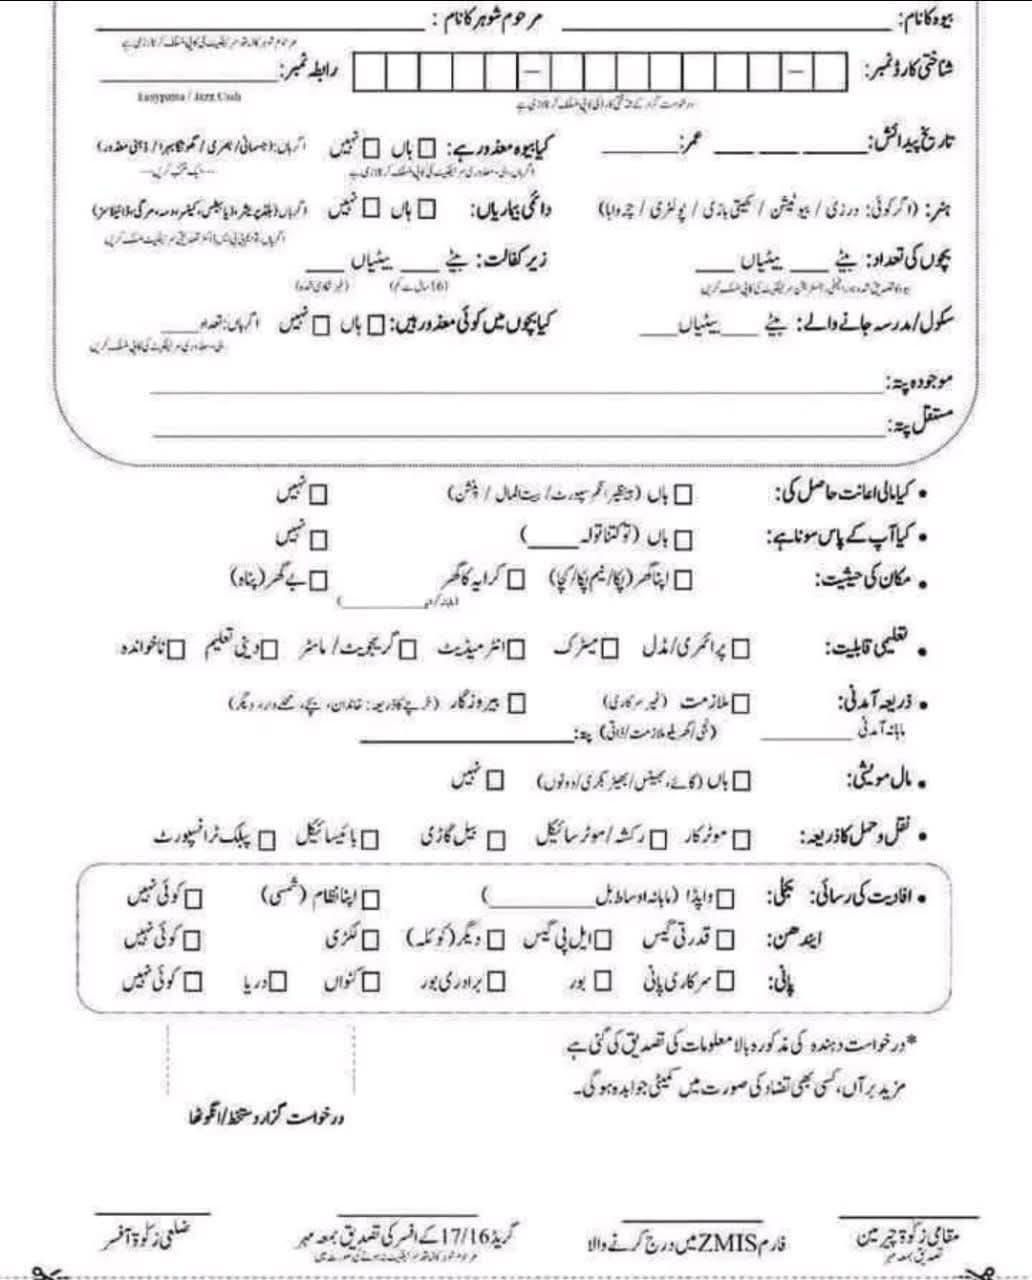 بیوہ کا نام: ____________ مرحوم شوہر کا نام: ____________
مرحوم شوہر کا نادرا سرٹیفکیٹ کی کاپی منسلک کرنا لازمی ہے
شناختی کارڈ نمبر: رابطہ نمبر: ____________
درخواست گزار کے شناختی کارڈ کی کاپی منسلک کرنا لازمی ہے Easypaisa / Jazz Cash
تاریخ پیدائش: ____ ____ ____ عمر: ____ کیا بیوہ معذور ہے: □ ہاں □ نہیں اگر ہاں: (جسمانی / بصری / گونگا بہرا / ذہنی معذور)
اگر ہاں، معذوری سرٹیفکیٹ کی کاپی منسلک کرنا لازمی ہے
ہنر: (اگر کوئی: درزی / بیوٹیشن / کھیتی باڑی / پولٹری / چرواہا) دائمی بیماریاں: □ ہاں □ نہیں اگر ہاں (بلڈ پریشر، ذیابیطس، کینسر، دمہ، مرگی، ڈائیلاسز)
بچوں کی تعداد: بیٹے ____ بیٹیاں ____ زیر کفالت: بیٹے ____ بیٹیاں ____
(16 سال سے کم) (غیر شادی شدہ)
سکول/مدرسہ جانے والے: بیٹے ____ بیٹیاں ____ کیا بچوں میں کوئی معذور ہیں: □ ہاں □ نہیں اگر ہاں: تعداد ____
موجودہ پتہ: ____________
مستقل پتہ: ____________
• کیا مالی اعانت حاصل کی: □ ہاں (بینظیر انکم سپورٹ / بیت المال / پنشن) □ نہیں
• کیا آپ کے پاس سونا ہے: □ ہاں (تو کتنا تولہ ____) □ نہیں
• مکان کی حیثیت: □ اپنا گھر (پکا/نیم پکا/کچا) □ کرایہ کا گھر □ بے گھر (پناہ)
(ماہانہ کرایہ ____________)
• تعلیمی قابلیت: □ پرائمری/مڈل □ میٹرک □ انٹرمیڈیٹ □ گریجویٹ / ماسٹر □ دینی تعلیم □ ناخواندہ
• ذریعہ آمدنی: □ ملازمت (غیر سرکاری) □ بیروزگار (خرچے کا ذریعہ: خاندان، بچے، محلے دار، دیگر)
ماہانہ آمدنی ____________ (نجی/گھریلو ملازمت/ذاتی) پتہ: ____________
• مال مویشی: □ ہاں (گائے، بھینس/بھیڑ بکری/دونوں) □ نہیں
• نقل و حمل کا ذریعہ: □ موٹر کار □ رکشہ/موٹر سائیکل □ بیل گاڑی □ بائیسائیکل □ پبلک ٹرانسپورٹ
• افادیت کی رسائی: بجلی: □ واپڈا (ماہانہ اوسط بل ____________) □ اپنا نظام (شمسی) □ کوئی نہیں
ایندھن: □ قدرتی گیس □ ایل پی گیس □ دیگر (کوئلہ) □ لکڑی □ کوئی نہیں
پانی: □ سرکاری پانی □ بور □ برادری بور □ کنواں □ دریا □ کوئی نہیں
*درخواست دہندہ کی مذکورہ بالا معلومات کی تصدیق کی گئی ہے
مزید برآں، کسی بھی تضاد کی صورت میں کمیٹی جوابدہ ہوگی۔
درخواست گزار دستخط/انگوٹھا
مقامی زکوٰۃ چیرمین فارم ZMIS میں درج کرنے والا گریڈ 17/16 کے افسر کی تصدیق بمعہ مہر ضلعی زکوٰۃ آفسر
تصدیق بمعہ مہر